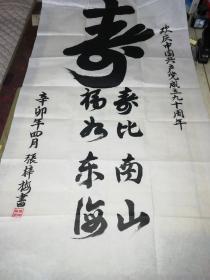 欢庆中国共产党成立九十周年
寿
寿比南山
福如东海
辛卯年四月 張梓梅書